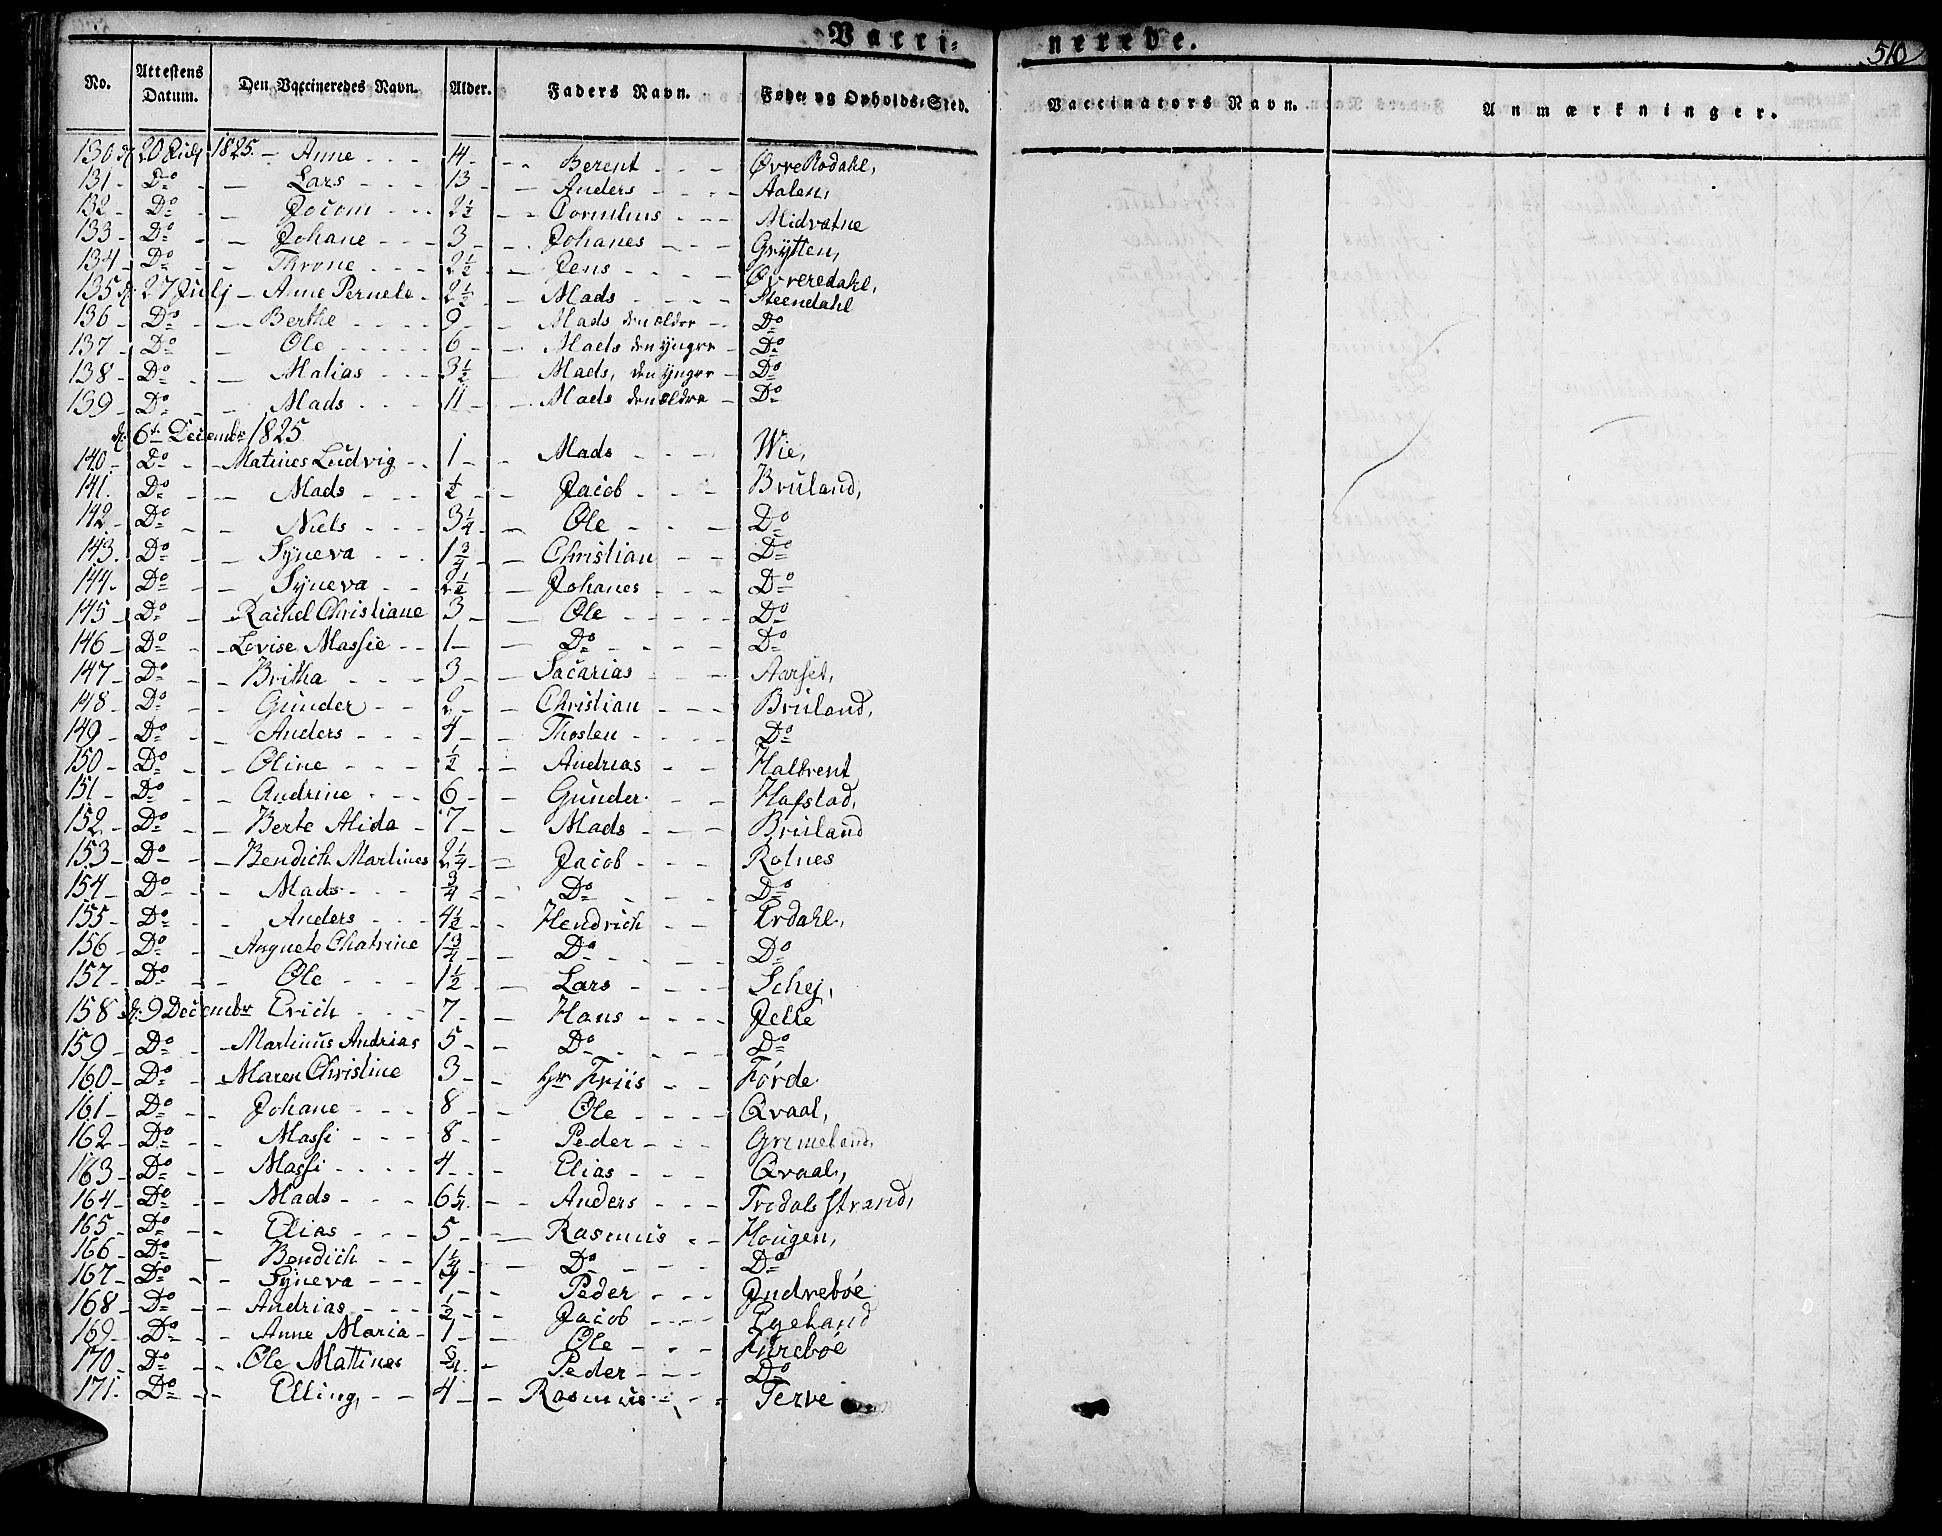 Vacci-
nerede.
510
No. Attestens Datum. Den Vaccineredes Navn. Alder. Faders Navn. Føde og Opholds-Sted. Vaccinators Navn. Anmærkninger.
130 d: 20 Julj 1825. - Anne - - - 14 - - - Berent - - - Øvre Rodahl,
131 - Do - - Lars - - - 13 - - Anders - - - Aalen,
132 - Do - - Jocom - - - 2½ - - Cornelius - - - Midvatne
133 - Do - - Johane - - - 3 - - Johanes - - - Grÿtten,
134 - Do - - Throne - - - 2½ - - Jens - - - Øvreredahl,
135 d: 27 Julj - Anne Pernele - 2½ - - Mads - - - Steendahl
136 - Do - - Berthe - - - 9 - - Mads den ældre - Do
137 - Do - - Ole - - - 6 - - Mads den ÿngre - Do
138 - Do - - Malias - - - 3½ - Mads, den ÿngre - Do
139 - Do - - Mads - - - 11 - - Mads den ældre - Do
d: 6te Decembr 1825
140 - Do - - Matines Ludvig - - 1 - - Mads - - - Wie,
141. Do - - Mads - - - ½ - - Jacob - - - Bruland,
142 - Do - - Niels - - - 3¼ - - Ole - - - Do
143. Do - - Sÿneva - - - 1¾ - - Christian - - Do
144 - Do - - Sÿneva - - 2½ - - Johanes - - - Do
145 - Do - - Rachel Christiane 3 - - Ole - - - Do
146 - Do - - Lovise Massie - - 1 - - Do - - - Do
147 - Do - - Britha - - - 3 - - Sacarias - - - Aarset,
148 - Do - - Gunder - - - Christian - - - Bruland,
149 - Do - - Anders - - - 4 - - Thosten - - - Do
150 - Do - - Oline - - - ½ - - Andrias - - Halbrent
151 - Do - - Andrine - - - 6 - - Gunder - - Hafstad,
152 - Do - - Berte Alida - 7 - - Mads - - - Bruland
153 - Do - - Bendich Martines 2¼ - Jacob - - - Rolnes
154 - Do - - Mads - - - ¾ - - Do - - - Do
155 - Do - - Anders - - - 4½ - - Hendrich - - Erdahl,
156 - Do - - Angnete Chatrine 1¾ - - Do - - - Do
157 - Do - - Ole - - - 1½ - - Lars - - - Schej,
158 d: 9 Decembr Erich - - - 7 - - Hans - - - Jelle
159 - Do - - Martinus Andrias 5 - - Do - - - Do
160 - Do - - Maren Christine 3 - - Hr Friis - - Førde
161 - Do - - Johane - - - 8 - - Ole - - - Qvaal,
162 - Do - - Massi - - - 8 - - Peder - - - Grimeland,
163 - Do - - Massi - - - 4 - - Elias - - - Qvaal,
164 - Do - - Mads - - - 6¼ - - Anders - - - Trodals strand,
165 - Do - - Elias - - - 5 - - Rasmus - - Hougen,
166 - Do - Bendich - - 1¼ - - Do - - - Do
167 - Do - - Sÿneva - - - Peder - - - Indrebøe
168 - Do - - Andrias - - - ½ - - Jacob - - - Egeland
169 - Do - - Anne Maria - 1 - - Ole - - -
170 - Do - - Ole Mattines - Peder - - - Do
171. Do - - Elling, - - 4 - - Rasmus - - - Terve